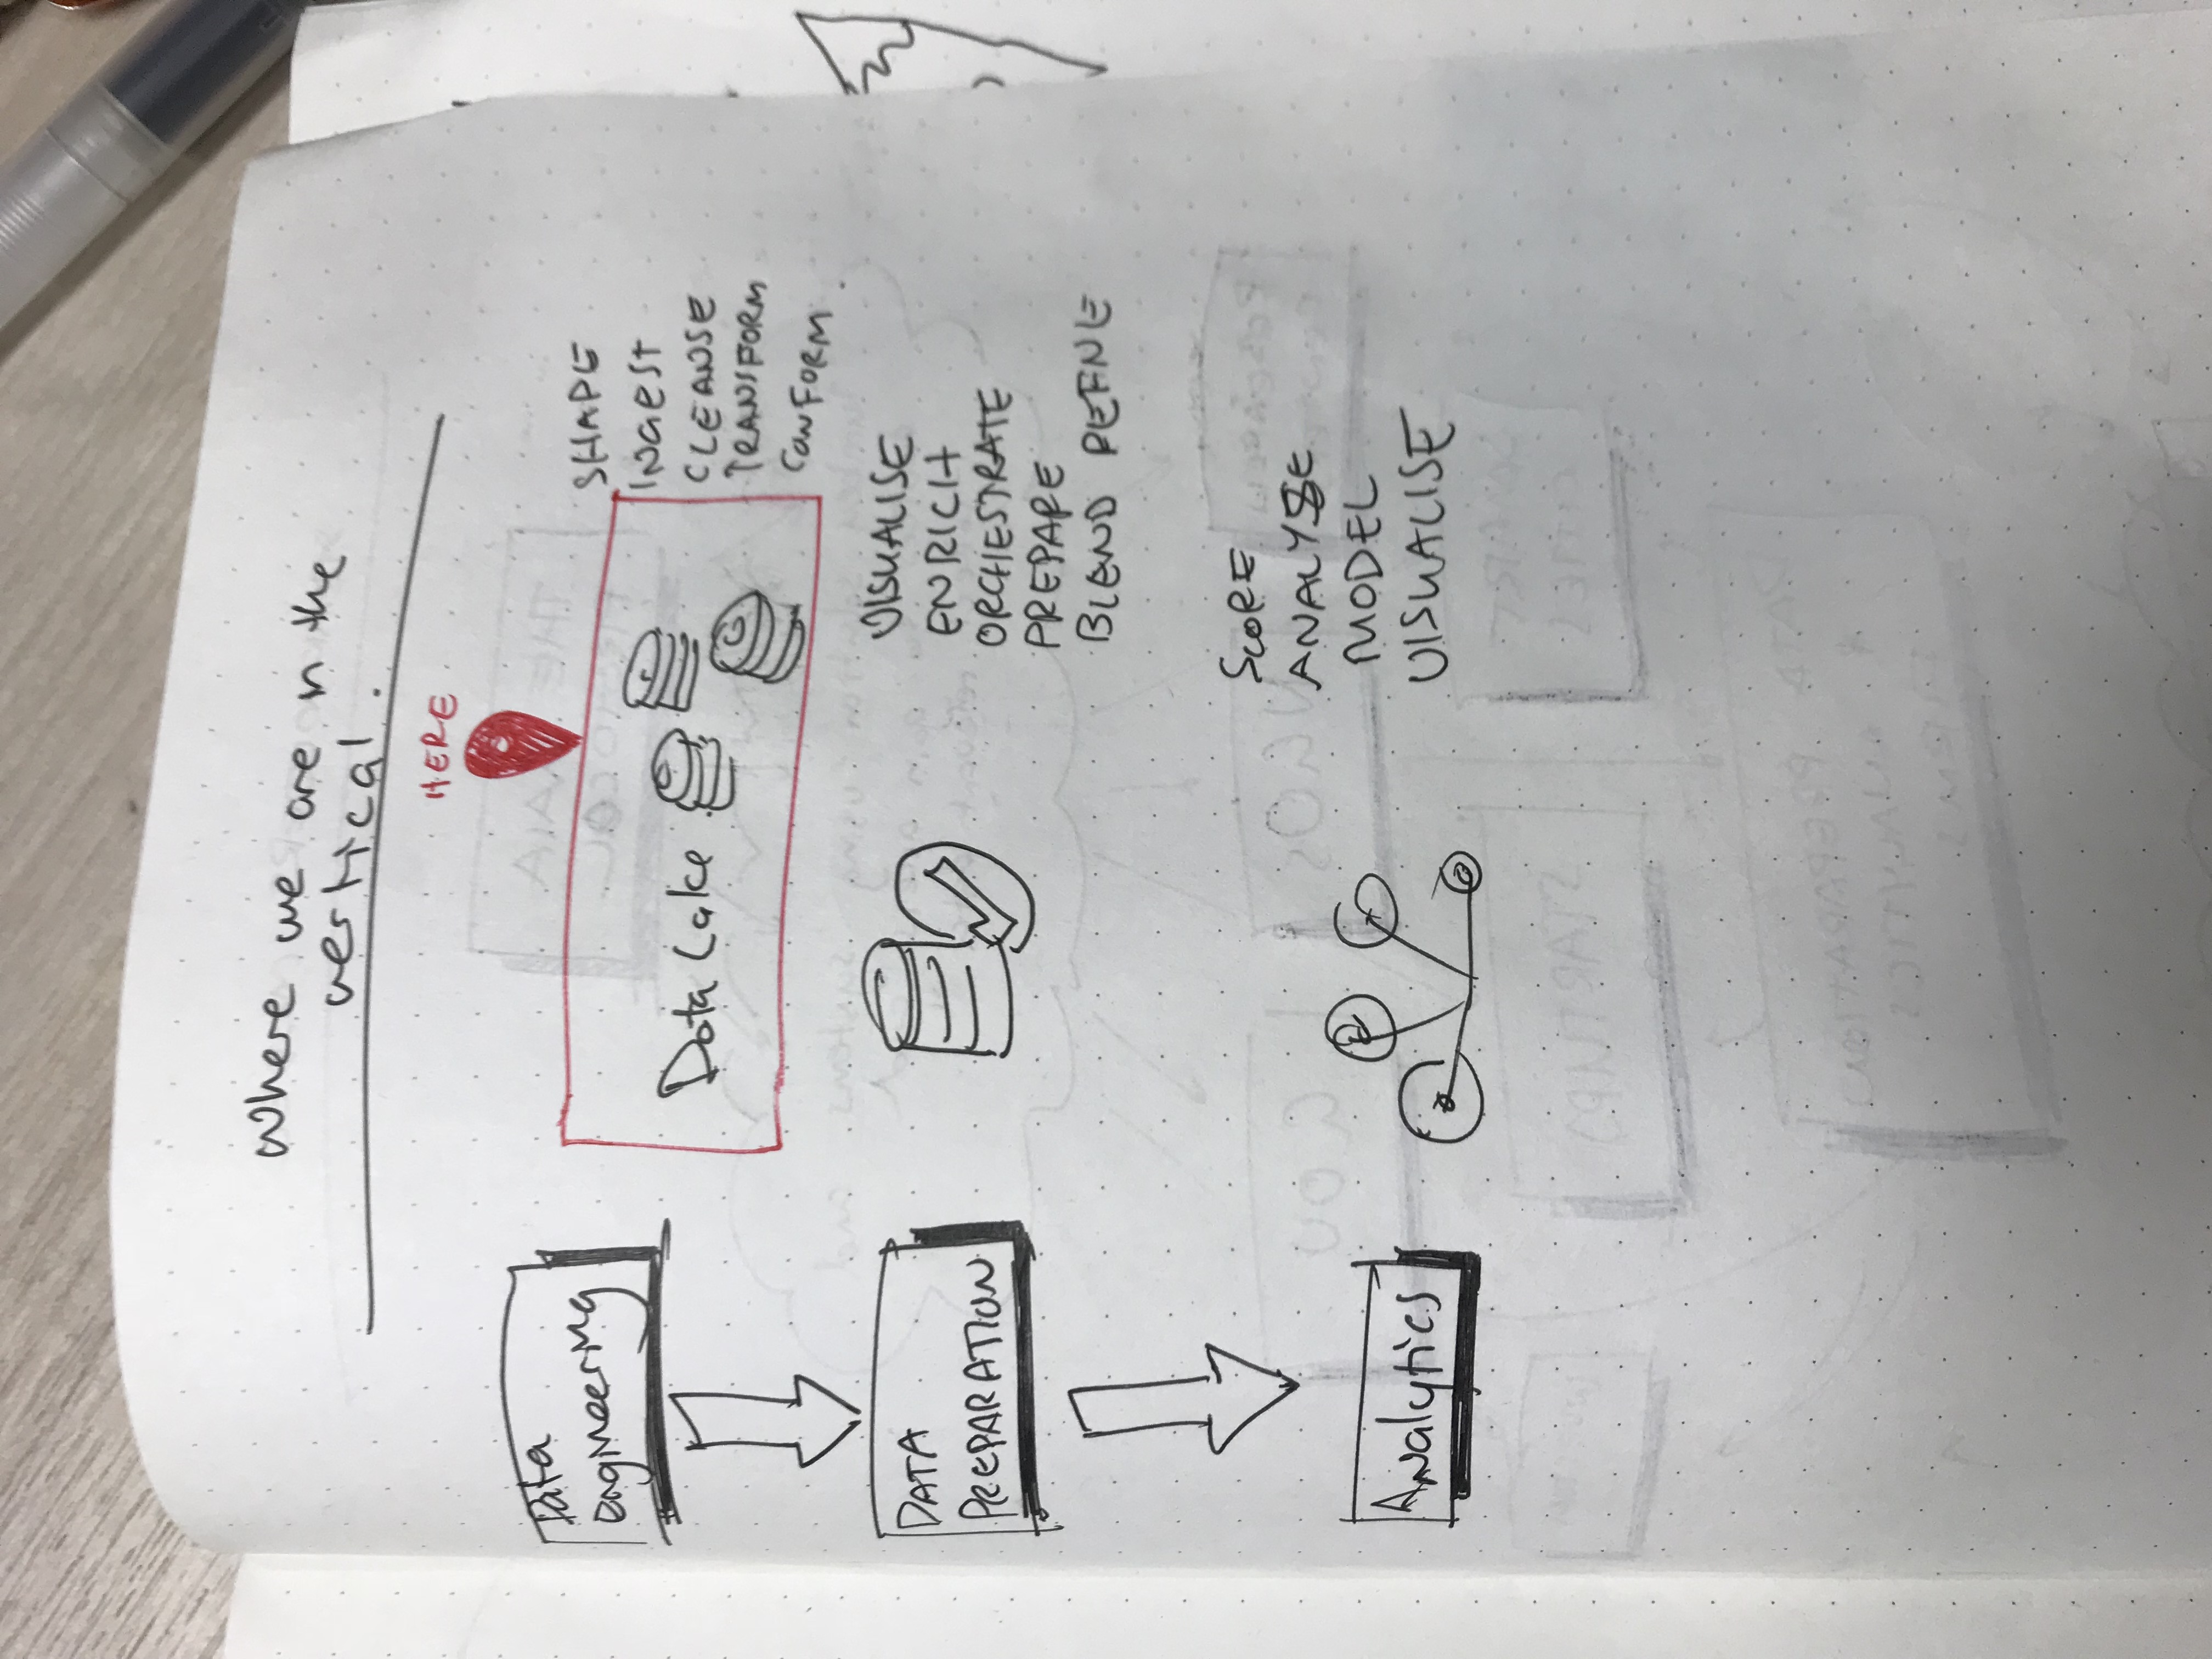 Where we are in the
vertical.
HERE
Data
Engineering
Data Lake
SHAPE
INGEST
CLEANSE
TRANSFORM
CONFORM.
DATA
PREPARATION
VISUALISE
ENRICH
ORCHESTRATE
PREPARE
BLEND REFINE
Analytics
SCORE
ANALYSE
MODEL
VISUALISE